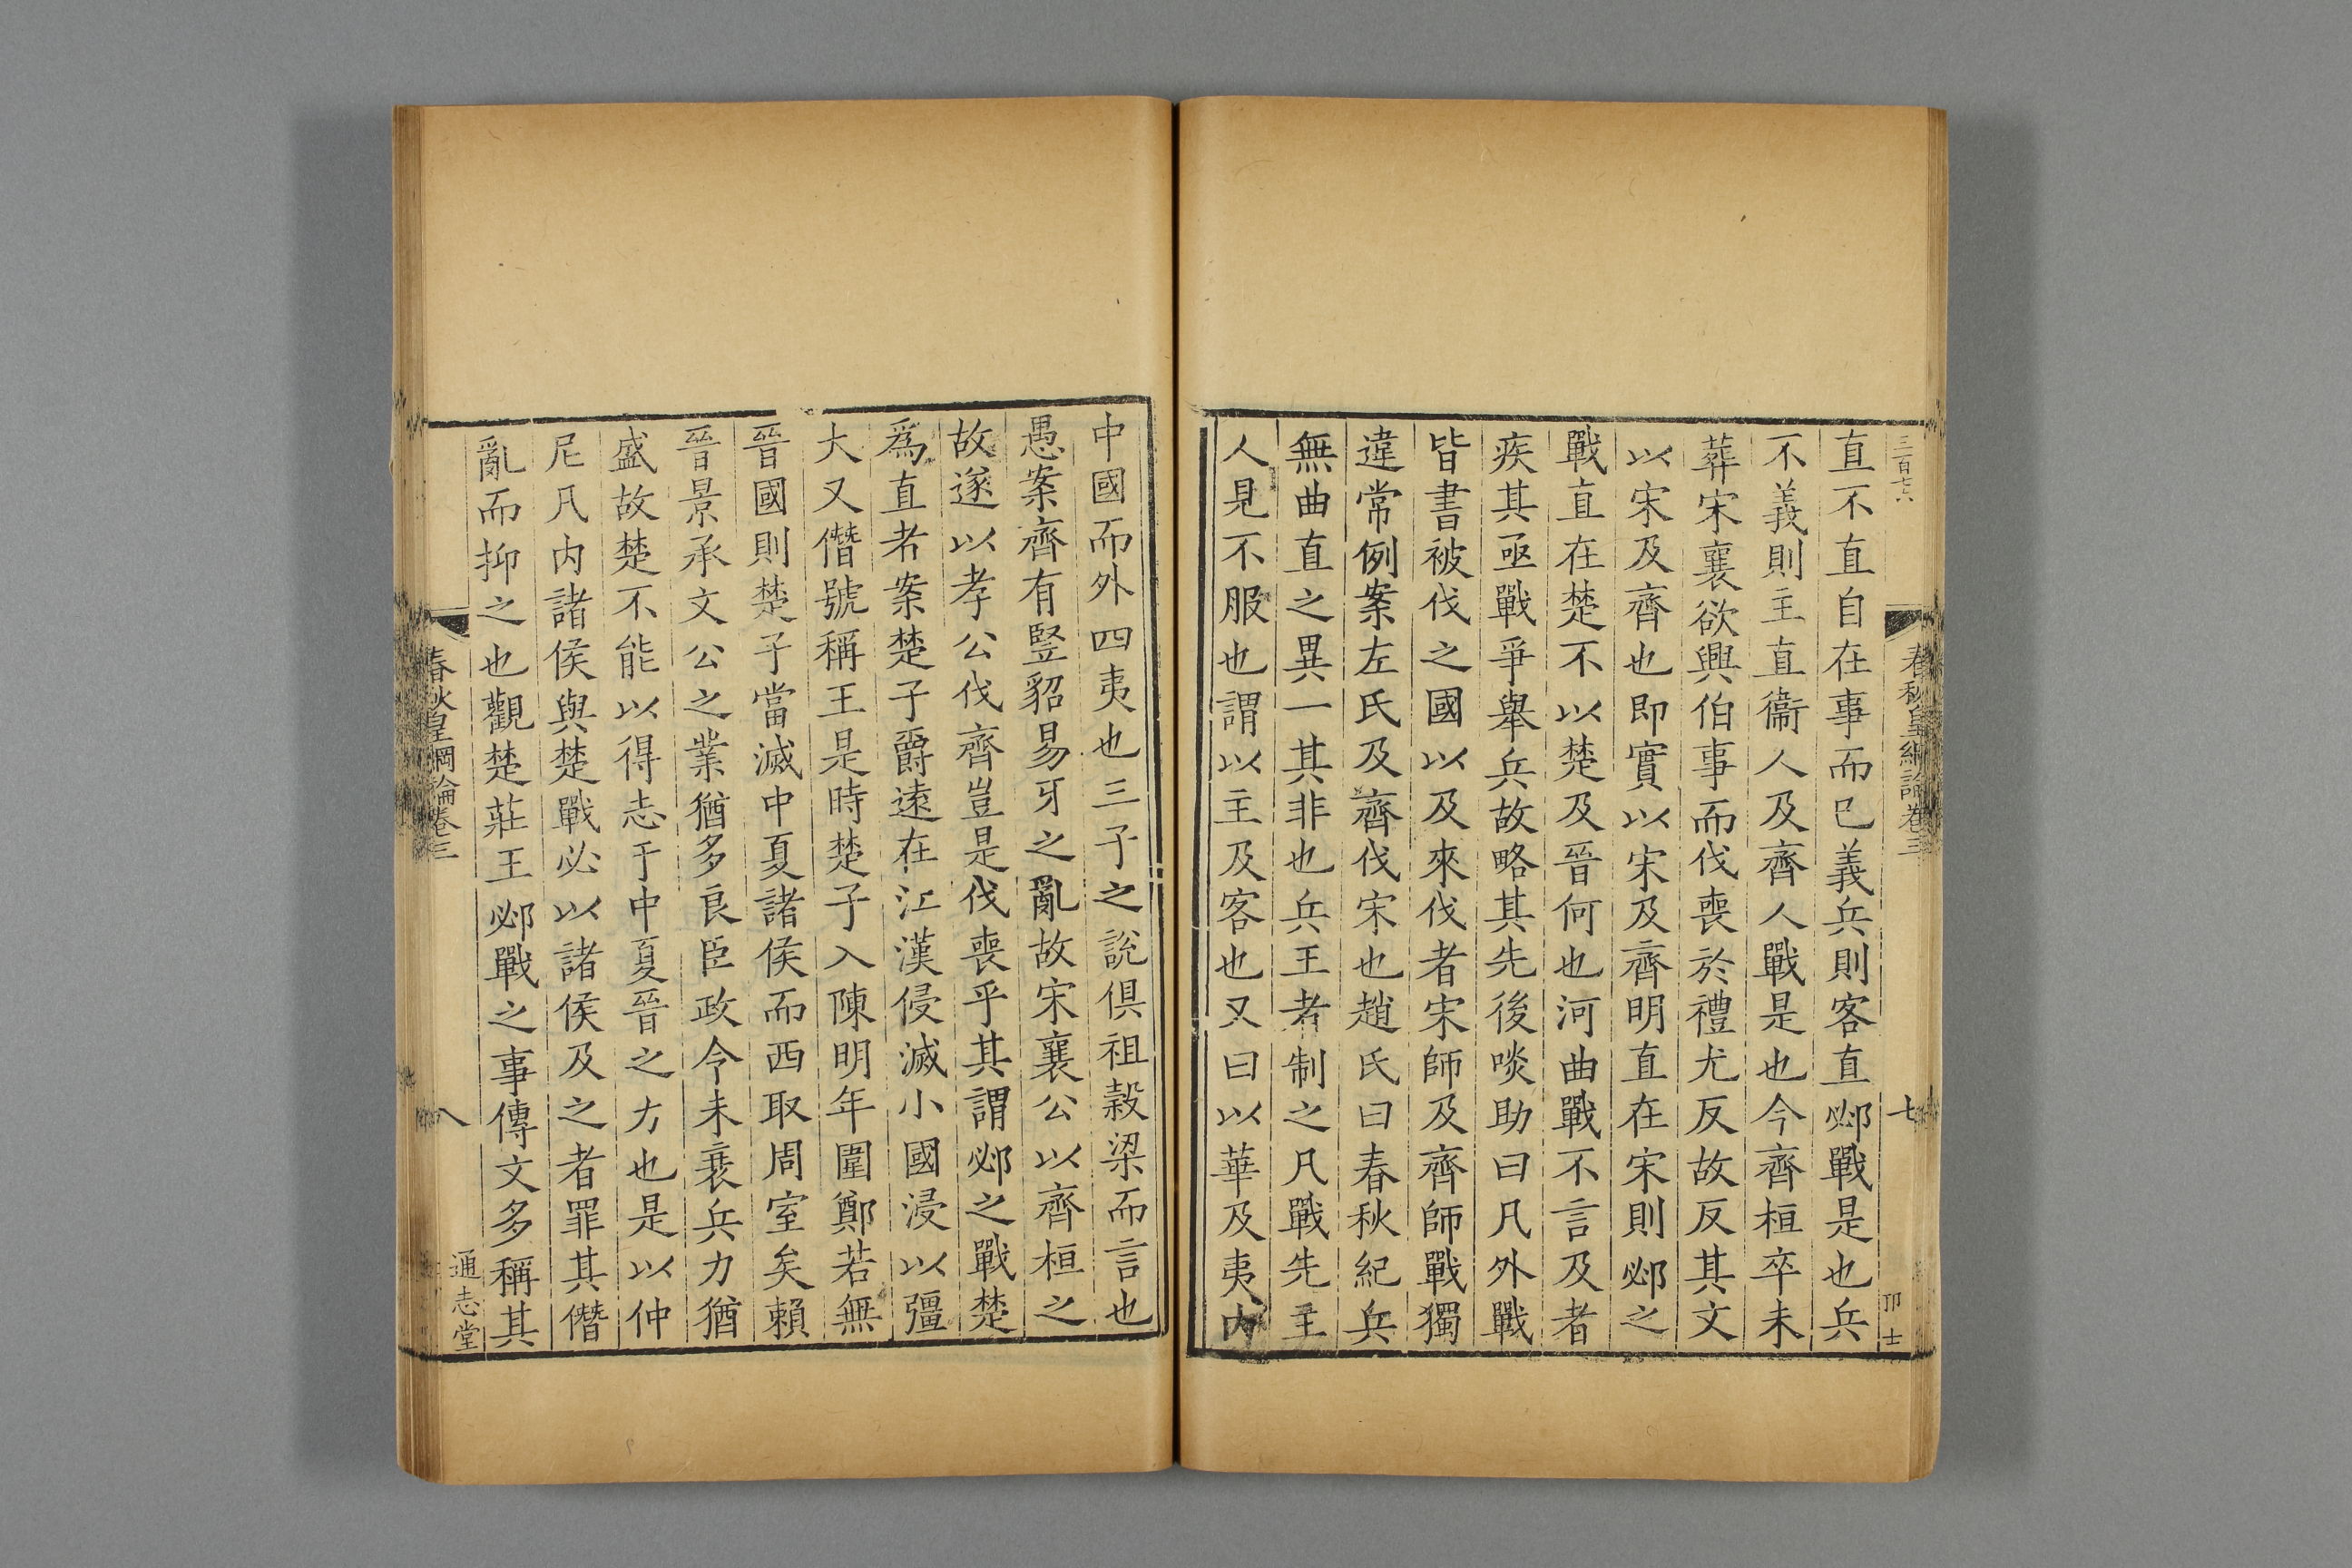 三百七六
春秋皇綱論卷三
七
卯士
直不直自在事而已義兵則客直邲戰是也兵
不義則主直衞人及齊人戰是也今齊桓卒未
葬宋襄欲興伯事而伐喪於禮尤反故反其文
以宋及齊也即實以宋及齊明直在宋則邲之
戰直在楚不以楚及晉何也河曲戰不言及者
疾其亟戰爭舉兵故略其先後啖助曰凡外戰
皆書被伐之國以及來伐者宋師及齊師戰獨
違常例案左氏及齊伐宋也趙氏曰春秋紀兵
無曲直之異一其非也兵王者制之凡戰先主
人見不服也謂以主及客也又曰以華及夷内
中國而外四夷也三子之說俱祖榖梁而言也
愚案齊有豎貂易牙之亂故宋襄公以齊桓之
故遂以孝公伐齊豈是伐喪乎其謂邲之戰楚
爲直者案楚子爵遠在江漢侵滅小國浸以彊
大又僭號稱王是時楚子入陳明年圍鄭若無
晉國則楚子當滅中夏諸侯而西取周室矣賴
晉景承文公之業猶多良臣政令未衰兵力猶
盛故楚不能以得志于中夏晉之力也是以仲
尼凡内諸侯與楚戰必以諸侯及之者罪其僭
亂而抑之也觀楚莊王邲戰之事傳文多稱其
春秋皇綱論卷三
八
通志堂